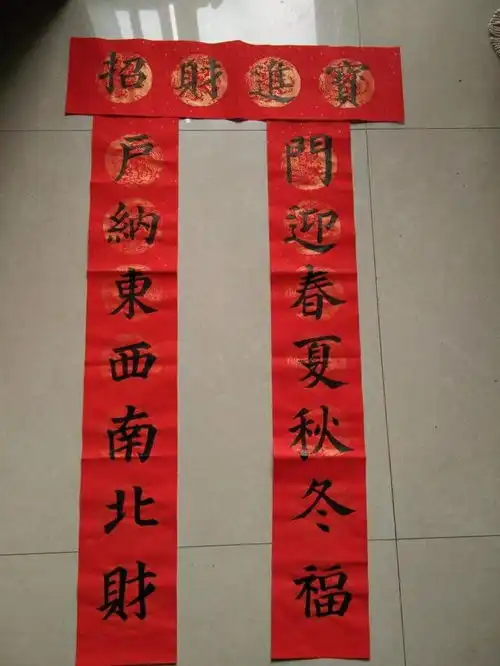 招財進寶
門迎春夏秋冬福
戶納東西南北財